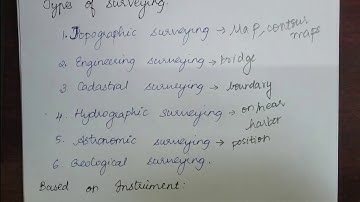 Types of surveying.
1. Topographic surveying → Map, contour maps
2. Engineering surveying → bridge
3 Cadastral surveying → boundary
4. Hydrographic surveying → on/near harbor
5. Astronomic surveying → position
6. Geological surveying.
Based on Instrument: